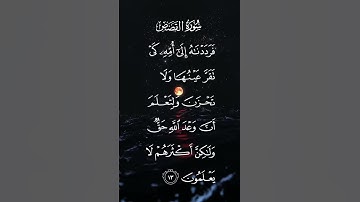 سُورَةُ القَصَصِ
فَرَدَدْنَٰهُ إِلَىٰٓ أُمِّهِۦ كَىْ
تَقَرَّ عَيْنُهَا وَلَا
تَحْزَنَ وَلِتَعْلَمَ
أَنَّ وَعْدَ ٱللَّهِ حَقٌّ
وَلَٰكِنَّ أَكْثَرَهُمْ لَا
يَعْلَمُونَ ١٣